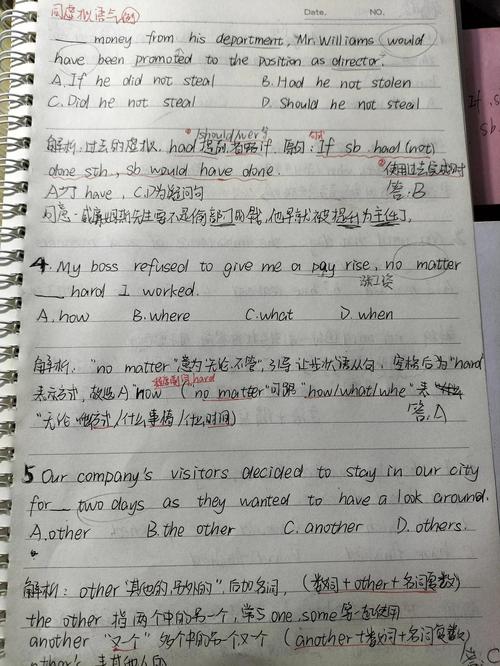 同虚拟语气(例)
Date. NO.
___ money from his department, Mr. Williams would
have been promoted to the position as director.
A. If he did not steal B. Had he not stolen
C. Did he not steal D. Should he not steal
① /should/wer
解析:过去的虚拟. had 提前,省略 if. 原句: If sb. had (not)
done sth., sb would have done. ②使用过去完成时
A少了 have, C,D为疑问句 答:B
同意:威廉姆斯先生要不是偷部门的钱,他早就被提升为主任了.
4. My boss refused to give me a pay rise, no matter
涨工资
___ hard I worked.
A. how B. where C. what D. when
解析: "no matter"意为"无论,不管",引导让步状语从句, 空格后为"hard
hard
表示方式, 故选A "how ( no matter"可跟 "how/what/whe" 表
"无论 方式/什么事情/什么时间) 答:A
5 Our company's visitors decided to stay in our city
for ___ two days as they wanted to have a look around.
A. other B. the other C. another D. others.
解析: other "其他的,另外的", 后加名词, (数词+other+名词复数)
the other 指两个中的另一个, 常与 one, some 等一起使用
another "又一个" 多个中的另一个又一个 (another+数词+名词复数)
答:C